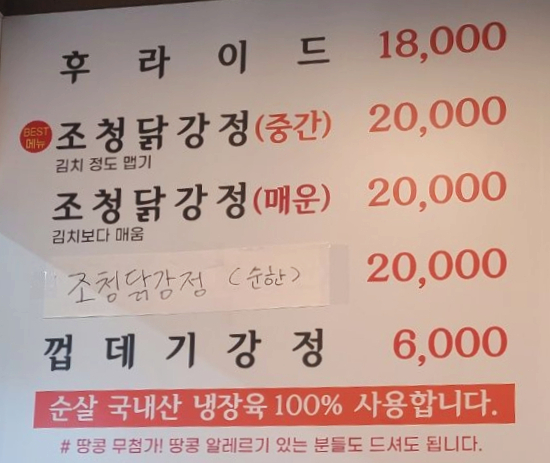 후라이드 18,000
BEST 메뉴 조청닭강정(중간) 20,000
김치 정도 맵기
조청닭강정(매운) 20,000
김치보다 매움
조청닭강정 (순한) 20,000
껍데기강정 6,000
순살 국내산 냉장육 100% 사용합니다.
# 땅콩 무첨가! 땅콩 알레르기 있는 분들도 드셔도 됩니다.